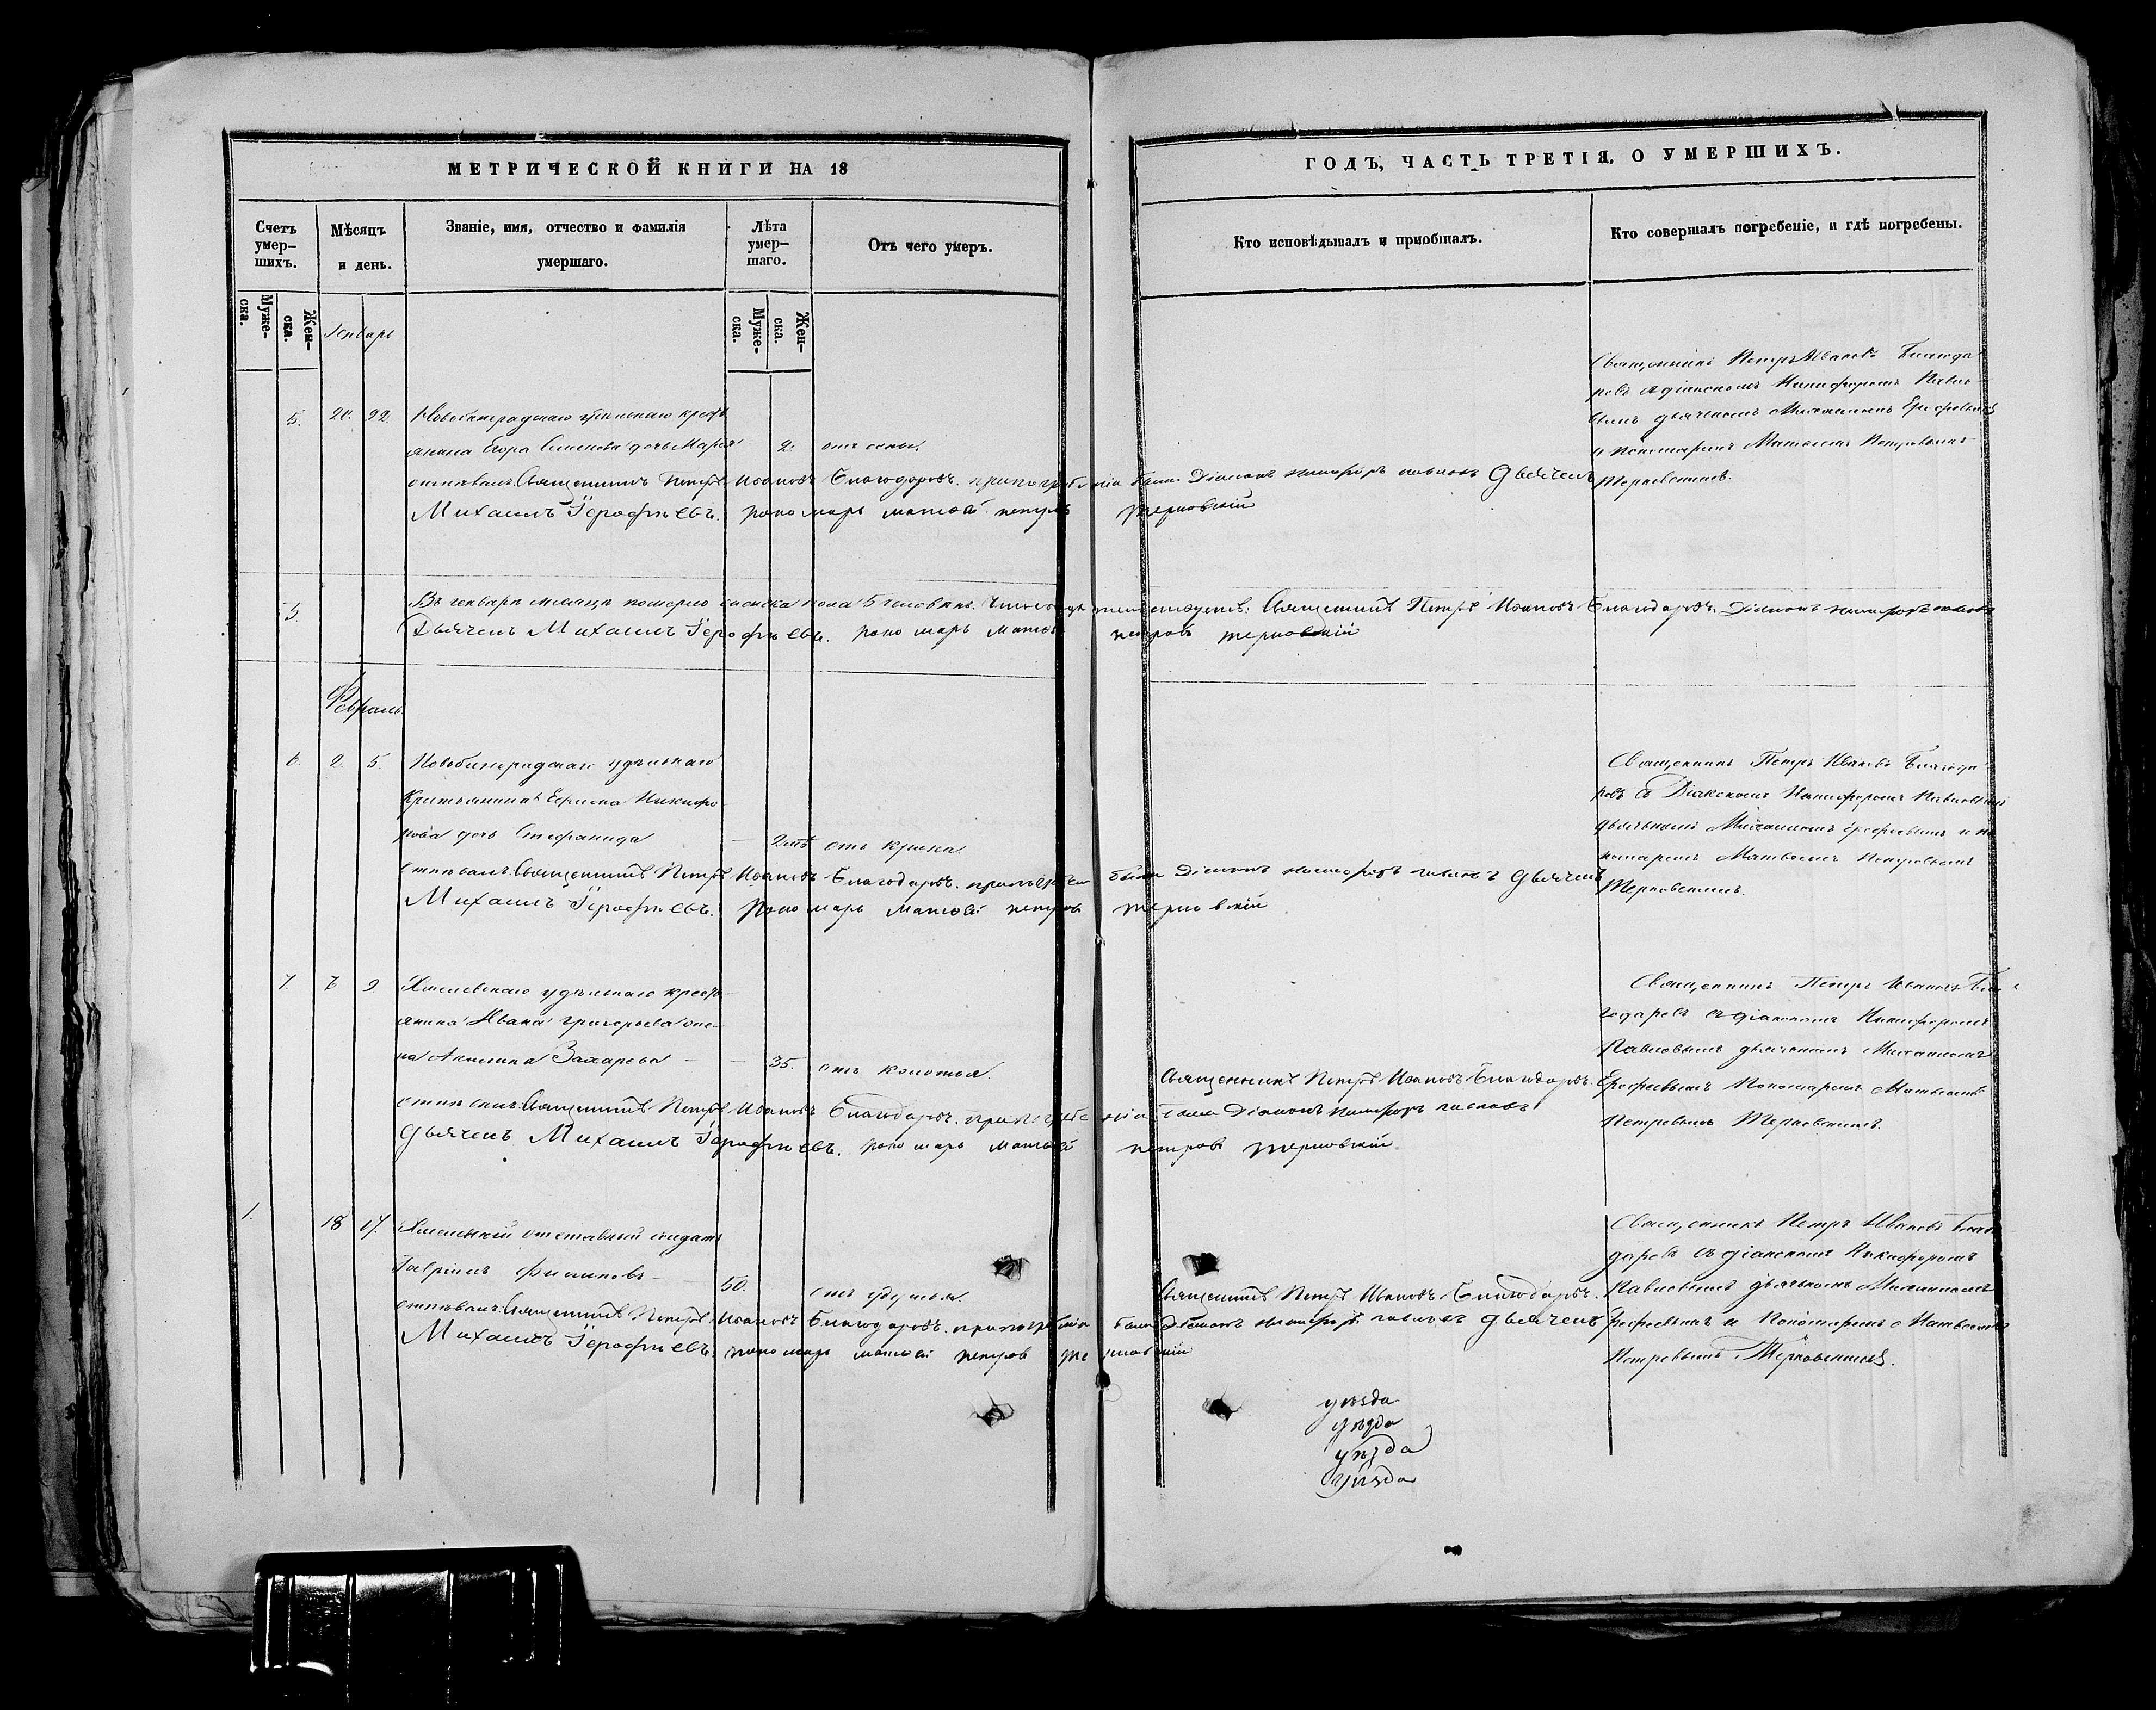 МЕТРИЧЕСКОЙ КНИГИ НА 18
ГОДЪ, ЧАСТЬ ТРЕТІЯ, О УМЕРШИХЪ.
Счетъ умер-шихъ.
Мѣсяцъ и день.
Званіе, имя, отчество и фамилія умершаго.
Лѣта умер-шаго.
Отъ чего умеръ.
Кто исповѣдывалъ и пріобщалъ.
Кто совершалъ погребеніе, и гдѣ погребены.
Муже-ска.
Жен-ска.
Муже-ска.
Жен-ска.
Генварь
5. 20. 22. удѣльнаго кресть
янина Егора Семенова дочь Марья 2. отъ оспы.
Священникъ Петръ Ивановъ Благода
ровъ с діакономъ Никифоромъ Павло
вымъ дьячкомъ Михаиломъ Ерофеевымъ
и пономаремъ Матвеемъ Петровымъ
Терновскимъ.
отпѣвалъ Священникъ Петръ Ивановъ Благодаровъ. при погребеніи были Діаконъ Никифоръ Павловъ Дьячекъ
Михаилъ Ѓерофѣевъ. Пономарь Матвѣй Петровъ Терновскій
5. Въ генварѣ месяцѣ померло женска пола 5 человѣкъ. Священникъ Петръ Ивановъ Благодаровъ. Діаконъ Никифоръ Павловъ
Дьячекъ Михаилъ Ѓерофѣевъ. Пономарь Матвѣй Петровъ Терновскій
Февраль
6. 2. 5. удѣльнаго
крестьянина Ефима Никифо
рова дочь Стефанида — 2 отъ крика.
Священникъ Петръ Ивановъ Благода
ровъ съ Діакономъ Никифоромъ Павловымъ
дьячкомъ Михаиломъ Ерофеевымъ и по
номаремъ Матвѣемъ Петровымъ
Терновскимъ.
отпѣвалъ Священникъ Петръ Ивановъ Благодаровъ. при погребеніи были Діаконъ Никифоръ Павловъ Дьячекъ
Михаилъ Ѓерофѣевъ. Пономарь Матвѣй Петровъ Терновскій
7. 6 9 удѣльнаго кресть
янина Ивана Григорьева же
на Акилина Захарова — 35. отъ колотья.
Священникъ Петръ Ивановъ Благодаровъ.
Священникъ Петръ Ивановъ Бла
годаровъ съ діакономъ Никифоромъ
Павловымъ дьячкомъ Михаиломъ
Ерофеевымъ Пономаремъ Матвѣемъ
Петровымъ Терновскимъ.
отпѣвалъ Священникъ Петръ Ивановъ Благодаровъ. при погребеніи были Діаконъ Никифоръ Павловъ
Дьячекъ Михаилъ Ѓерофѣевъ. Пономарь Матвѣй Петровъ Терновскій
1. 18 17. отставный солдатъ
Гавріилъ Филиповъ — 50. отъ удушья.
Священникъ Петръ Ивановъ Благодаровъ.
Священникъ Петръ Ивановъ Благо
даровъ съ діакономъ Никифоромъ
Павловымъ дьячкомъ Михаиломъ
Ерофеевымъ и Пономаремъ Матвеемъ
Петровымъ Терновскимъ.
отпѣвалъ Священникъ Петръ Ивановъ Благодаровъ. при погребеніи были Діаконъ Никифоръ Павловъ Дьячекъ
Михаилъ Ѓерофѣевъ. Пономарь Матвѣй Петровъ Терновскій
уѣзда
уѣзда
уѣзда
уѣзда